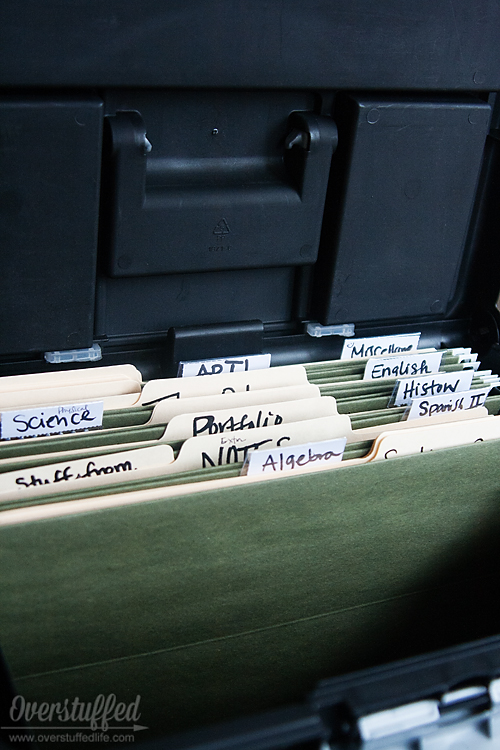 Miscellaneous
English
ART!
History
Spanish II
Physical
Science
Portfolio
Extra
NOTES
Algebra
Stuff from
Overstuffed
www.overstuffedlife.com